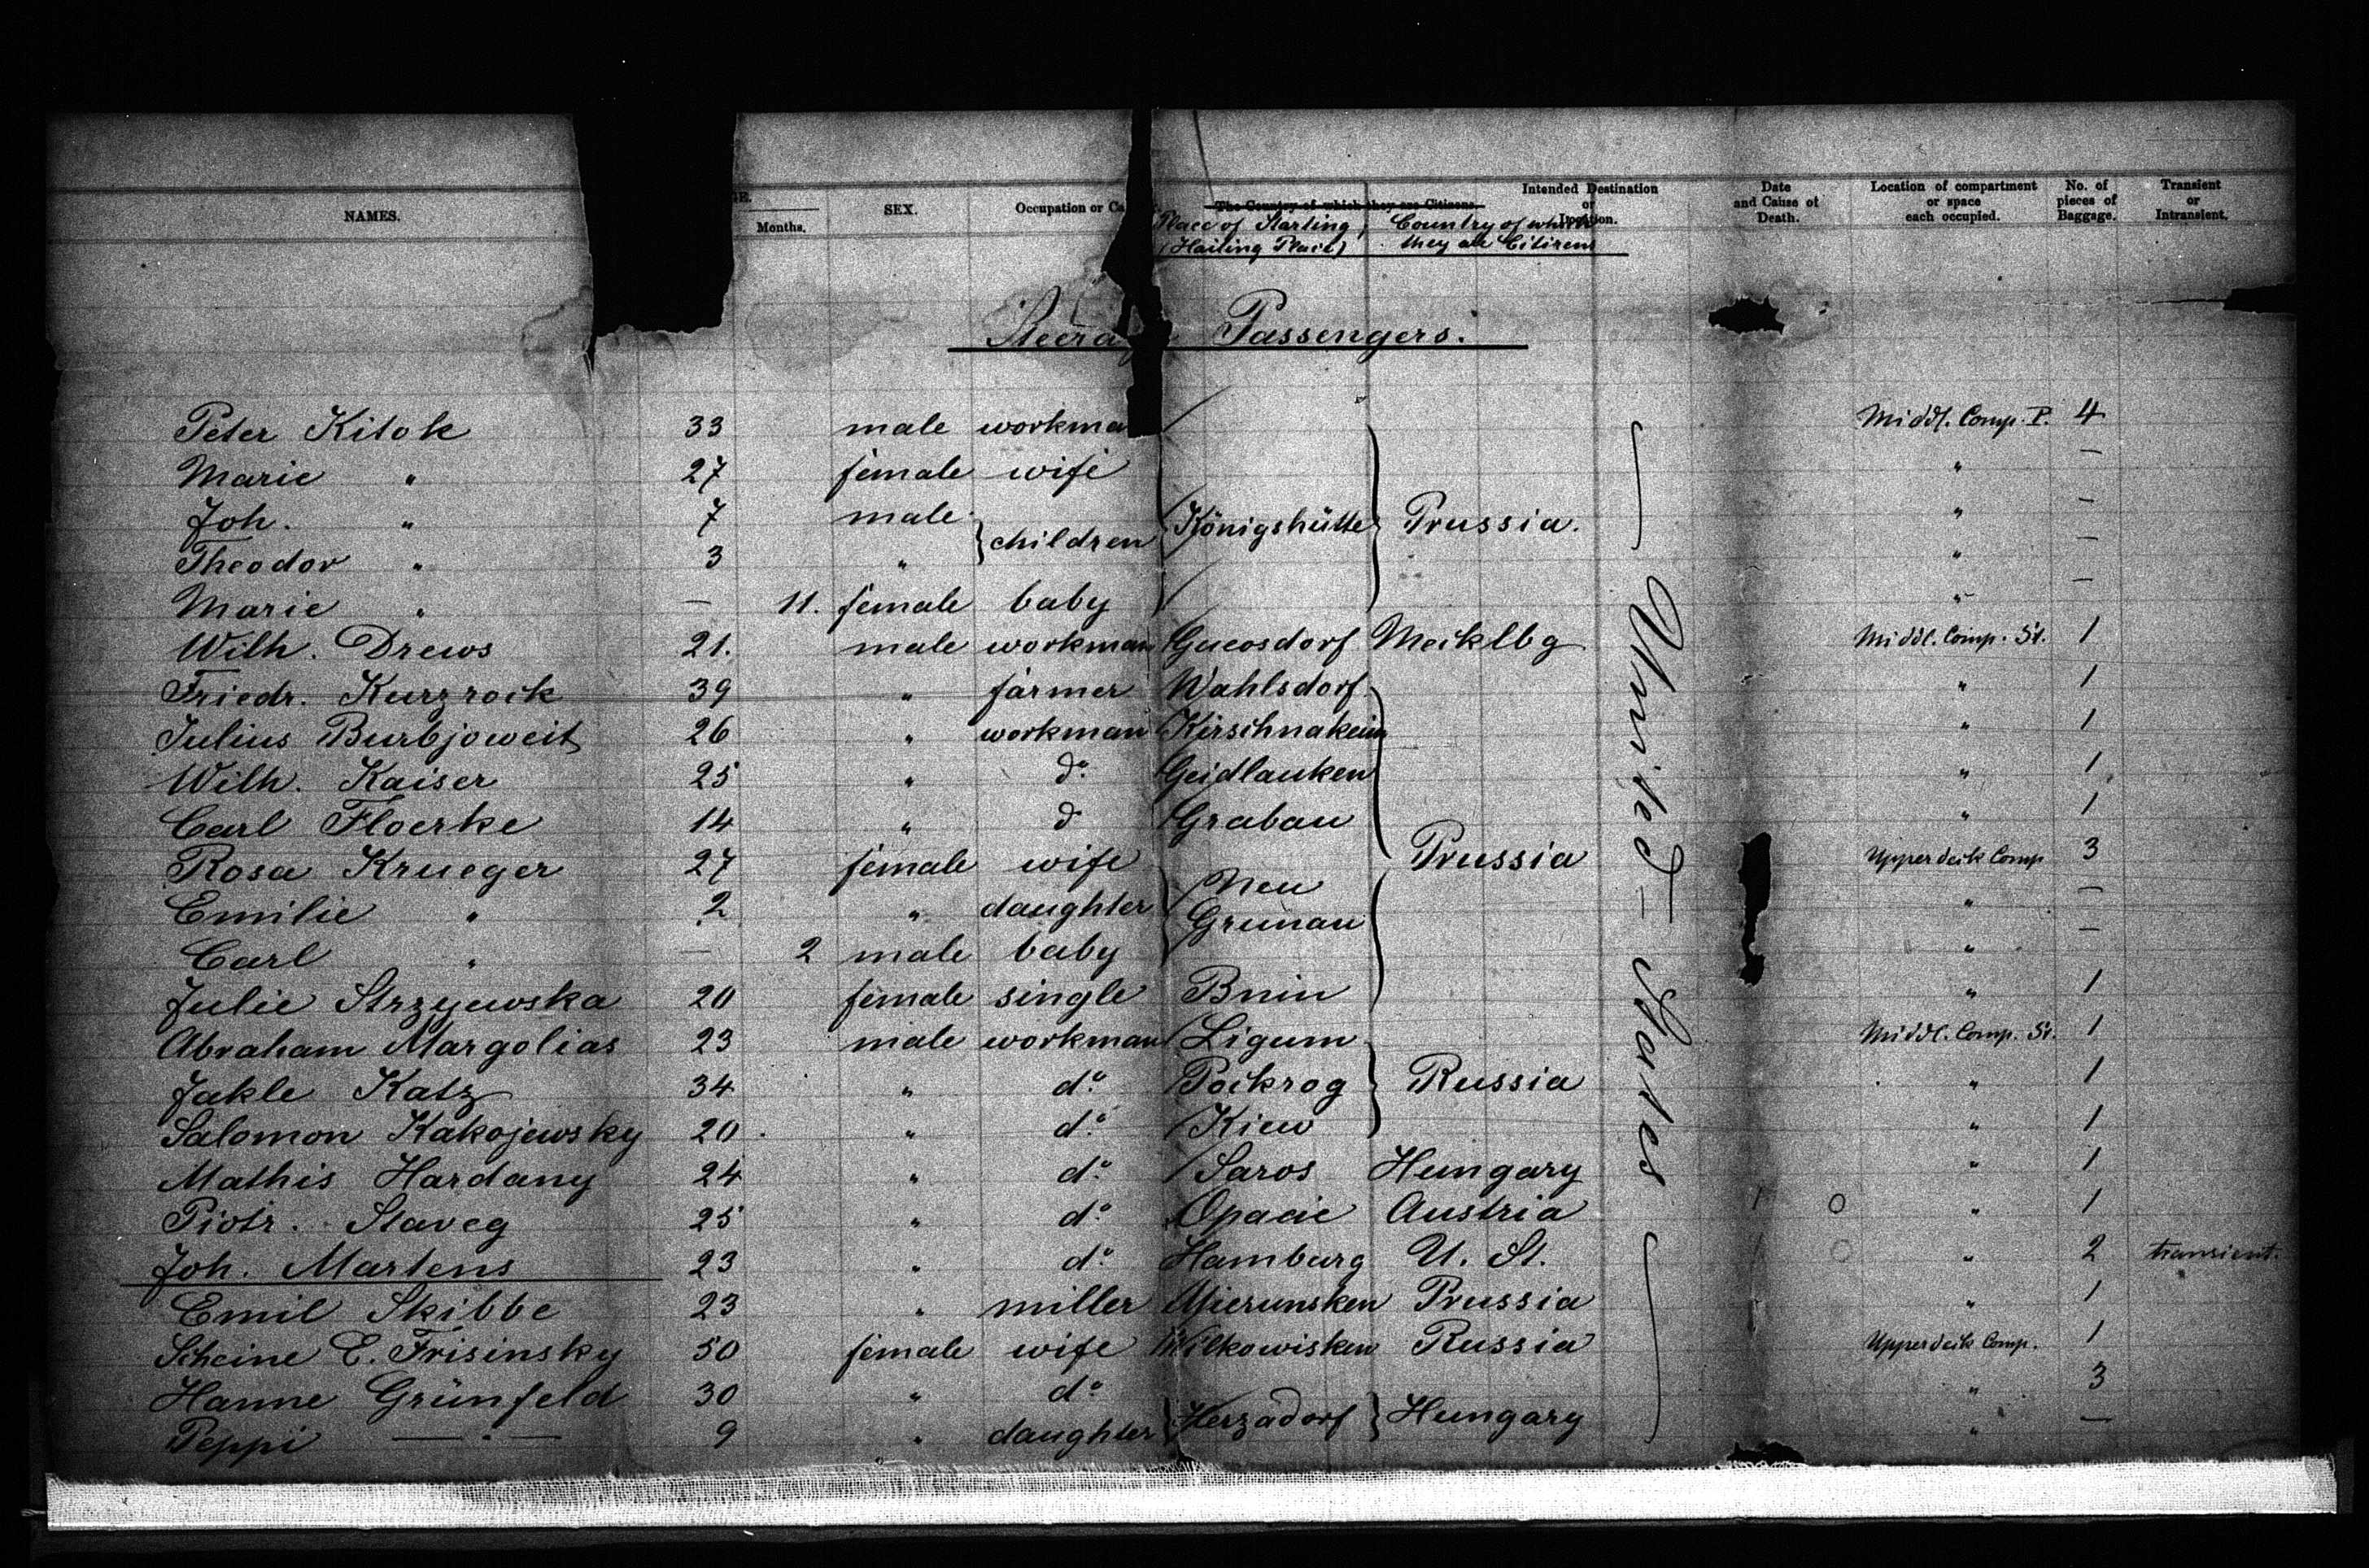 NAMES. GE. SEX. Occupation or Ca The Country of which they are Citizens. Intended Destination Date Location of compartment No. of Transient
Months. or and Cause of or space pieces of or
Location. Death. each occupied. Baggage. Intransient.
Place of Starting, Country of which
(Hailing Place) they are Citizens
Steerage Passengers.
Peter Kitok 33 male workma Middl. Comp. P. 4
Marie " 27 female wife " —
Joh. " 7 male } children Königshütte } Prussia. " —
Theodor " 3 " " —
Marie " — 11. female baby " —
Wilh. Drews 21. male workman Mecklbg Middl. Comp. St. 1
Friedr. Kurzrock 39 " farmer Wahlsdorf " 1
Julius Burbjoweit 26 " workman Kirschnakeim " 1
Wilh. Kaiser 25 " do. Geidlauken " 1
Carl Floerke 14 " do Grabau " 1
Rosa Krueger 27 female wife Prussia Upperdeck Comp 3
Emilie " 2 " daughter Neu Grunau " —
Carl " — 2 male baby " —
Julie Strzyewska 20 female single Bnin " 1
Abraham Margolias 23 male workman Ligum Middl. Comp. St. 1
Jakle Katz 34 " do. Pockrog } Russia " 1
Salomon Kakojewsky 20 " do. Kiew " 1
Mathis Hardany 24 " do. Saros Hungary " 1
Piotr. Staveg 25 " do. Opacie Austria " 1
Joh. Martens 23 " do. Hamburg U. St. " 2 transient.
Emil Skibbe 23 " miller Mierunsken Prussia " 1
Scheine E. Frisinsky 50 female wife Wilkowisken Russia Upperdeck Comp. 1
Hanne Grünfeld 30 " do. " 3
Peppi — " — 9 " daughter } Herzadorf } Hungary " —
United-States